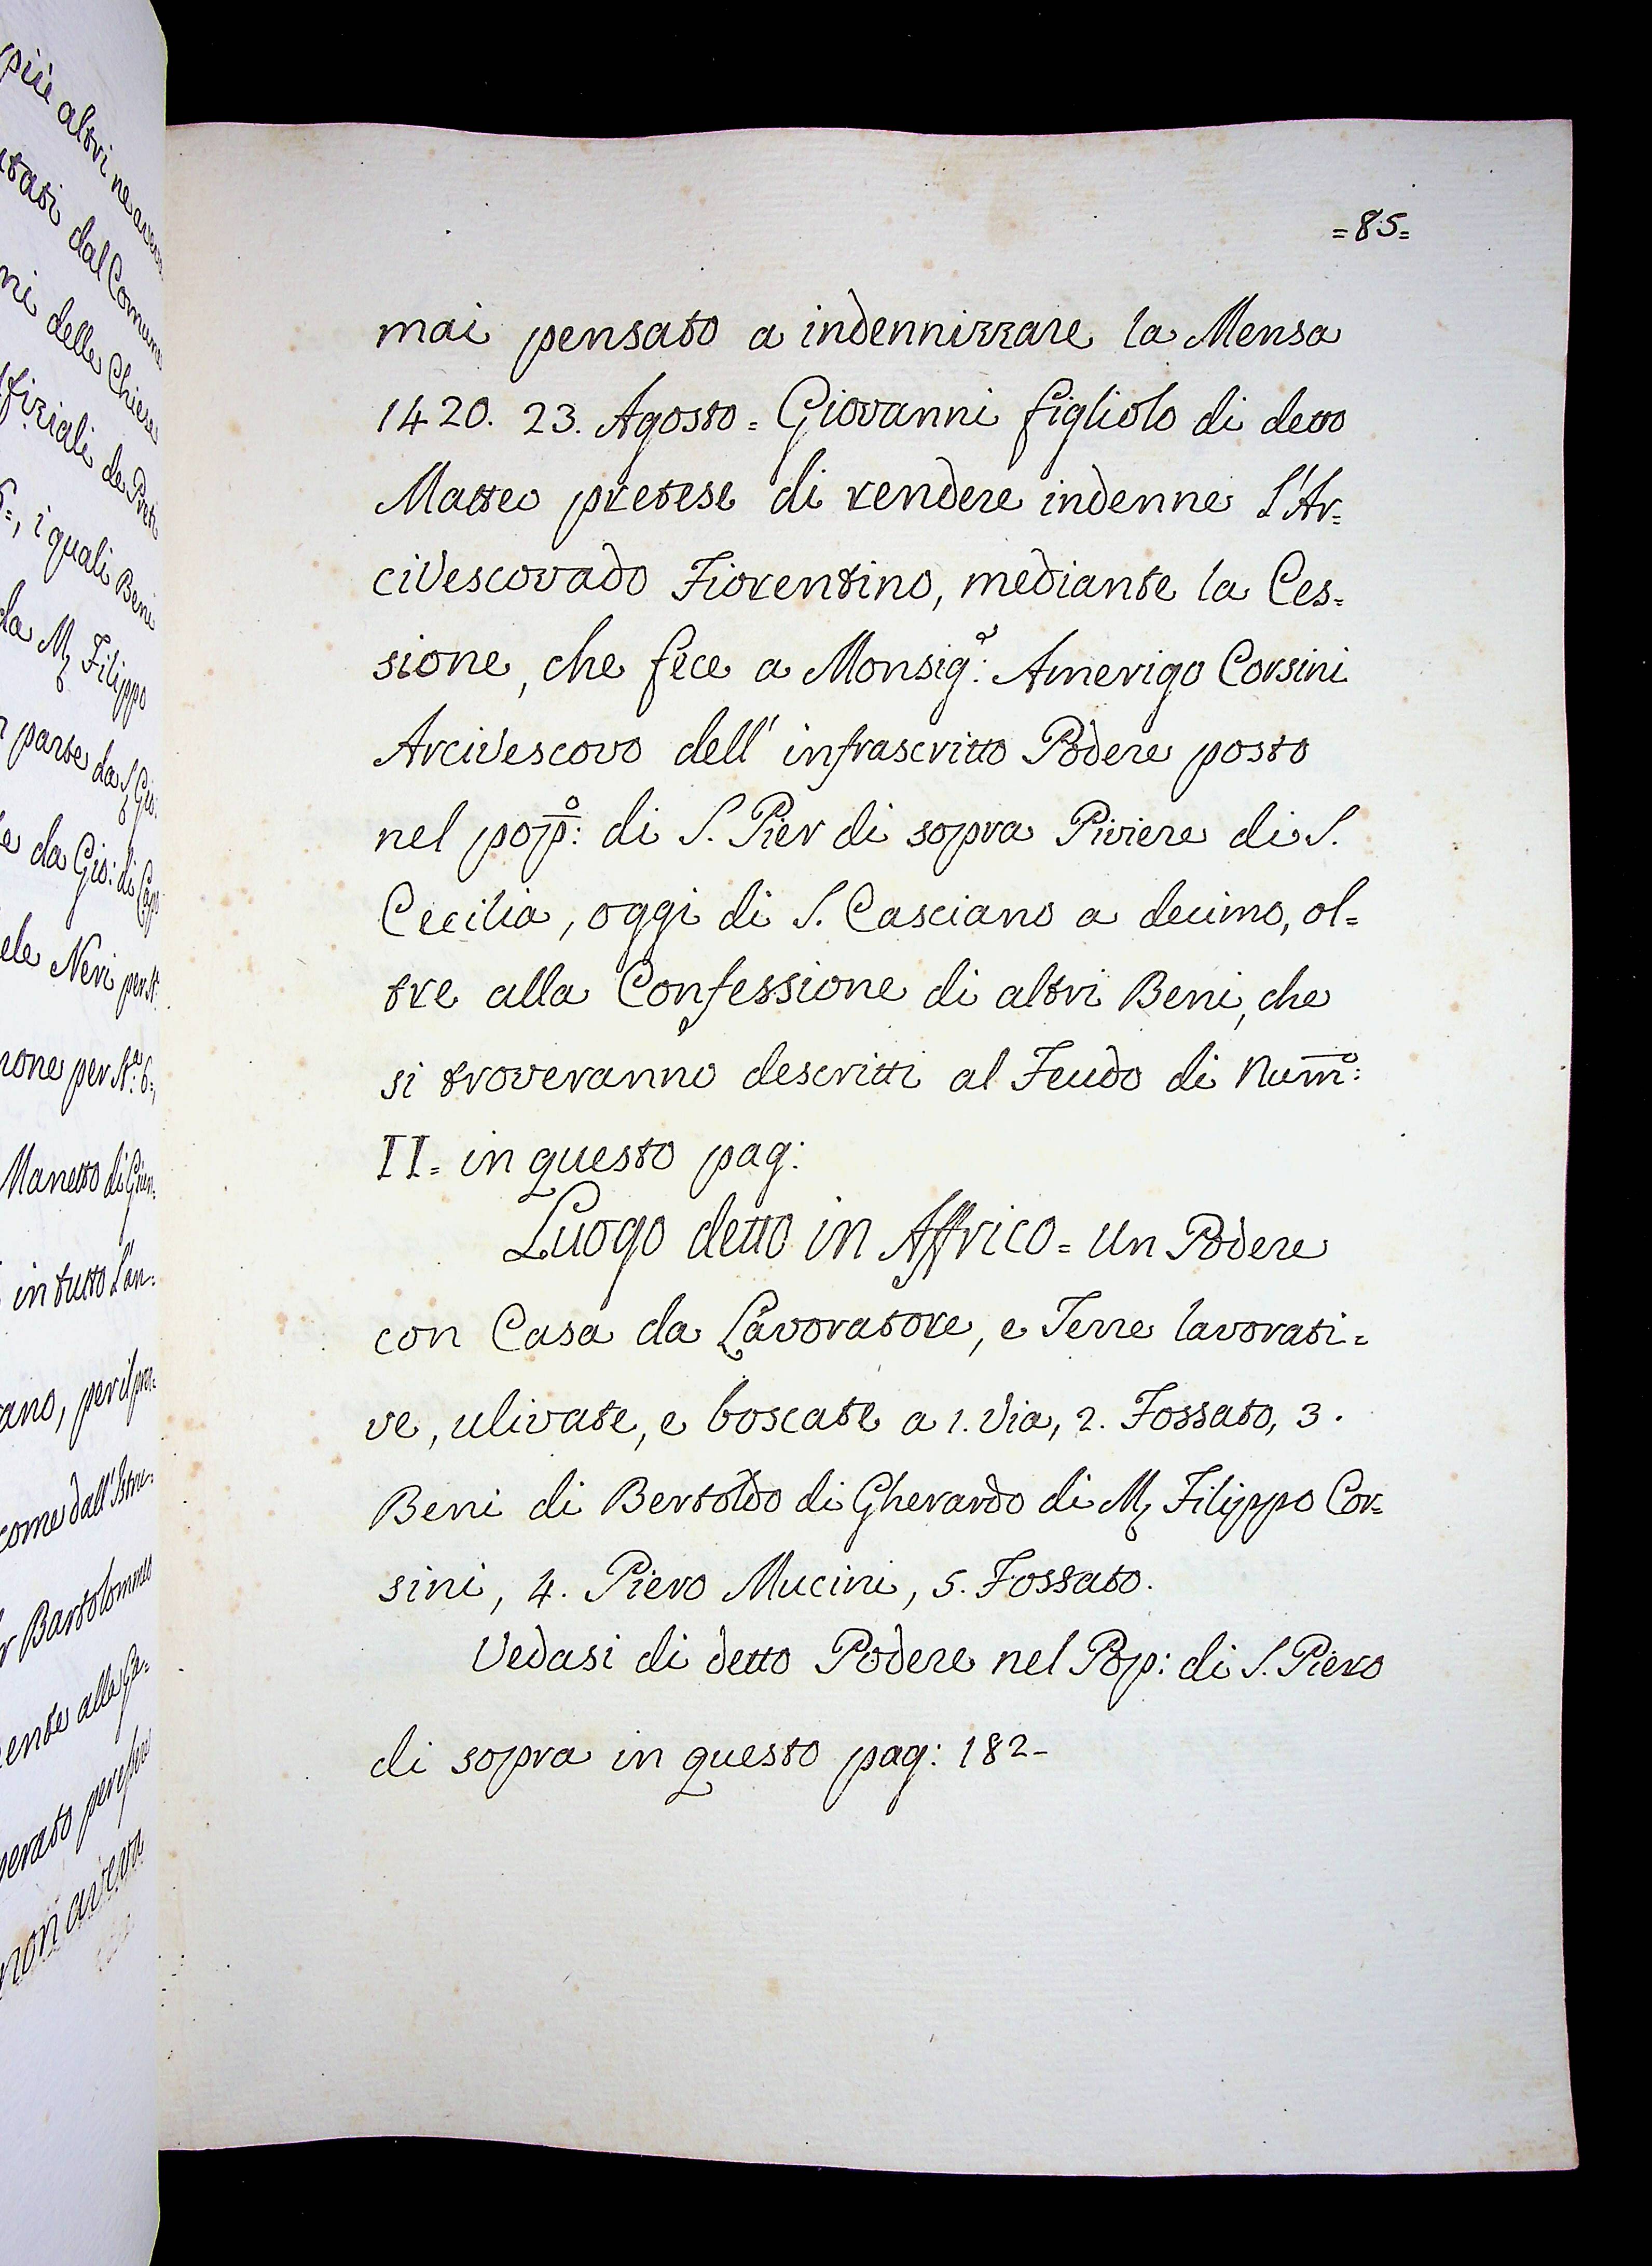 più altri ne aveva
dal Comune
ni delle Chiese
de Preti
i quali Beni
da M. Filippo
parte da S. Gio:
e da Gio: di
Neri per
none per
Manetto di
in tutto l'an=
ano, per il
come dall'
r Bartolommeo
ente alla
erato
non aveva
=85=
mai pensato a indennizzare la Mensa
1420. 23. Agosto = Giovanni figliolo di detto
Matteo pretese di rendere indenne l'Ar=
civescovado Fiorentino, mediante la Ces=
sione, che fece a Monsig.r: Amerigo Corsini
Arcivescovo dell' infrascritto Podere posto
nel pop̄o: di S. Pier di sopra Piviere di S.
Cecilia, oggi di S. Casciano a decimo, ol=
tre alla Confessione di altri Beni, che
si troveranno descritti al Feudo di Num̄o:
II= in questo pag:
Luogo detto in Affrico = Un Podere
con Casa da Lavoratore, e Terre lavorati=
ve, ulivate, e boscate a 1. Via, 2. Fossato, 3.
Beni di Bertoldo di Gherardo di M. Filippo Cor=
sini, 4. Piero Mucini, 5. Fossato.
Vedasi di detto Podere nel Pop: di S. Piero
di sopra in questo pag: 182-